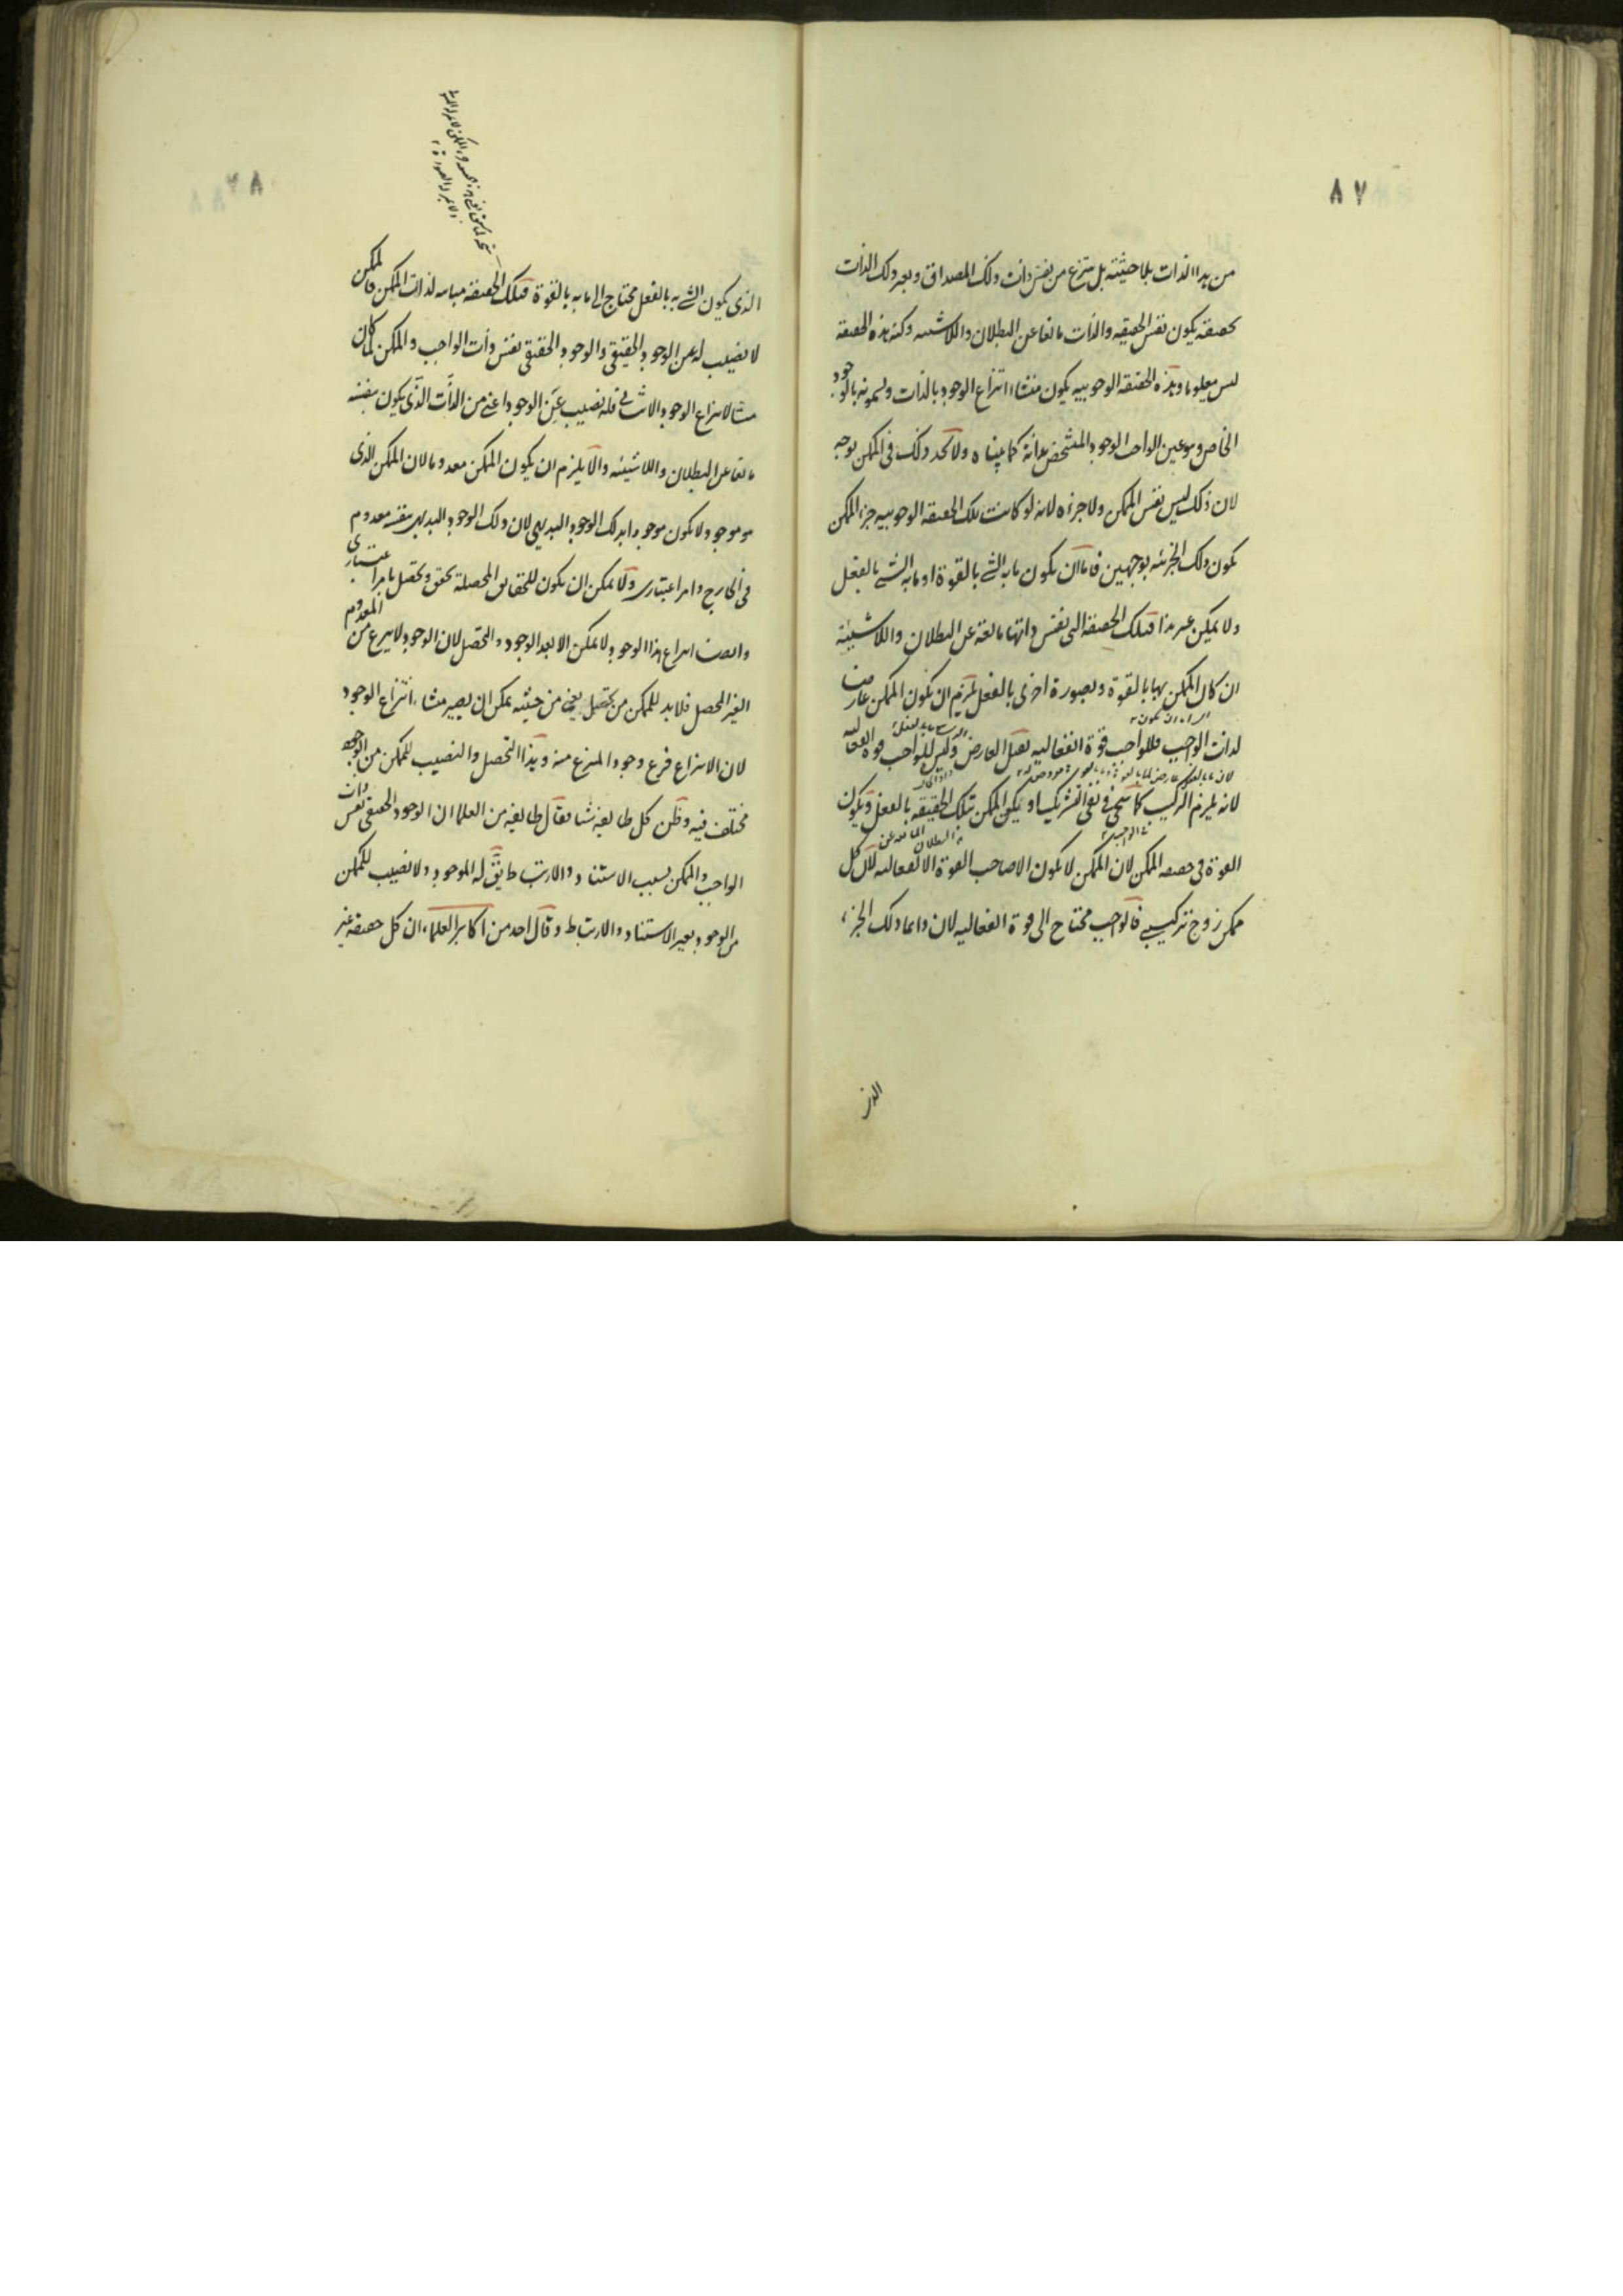 ٨٧
من هذا الذات بلا حيثية بل ينتزع من نفس ذات ذلك المصداق ويعبر ذلك الذات
بحقيقة يكون نفس الحقيقة والذات مانعا عن البطلان واللاشيئية وكنه هذه الحقيقة
ليس معلوما وهذه الحقيقة الوجوبية يكون منشاء انتزاع الوجود بالذات ويسمونه بالوجود
الخاص وهو عين الواجب الوجود المتشخص بذاته كما بيناه ولا نجد ذلك في الممكن بوجه
لان ذلك ليس نفس الممكن ولا جزءه لانه لو كانت تلك الحقيقة الوجوبية جزء الممكن
يكون ذلك الجزئية بوجهين فاما ان يكون ما به الشئ بالقوة او ما به الشئ بالفعل
ولا يمكن غير هذا فتلك الحقيقة التي نفس ذاتها مانعة عن البطلان واللاشيئية
ان كان الممكن بها بالقوة وبصورة اخرى بالفعل يلزم ان يكون الممكن عارضا
لذات الواجب فللواجب قوة انفعالية تقبل العارض وليس للواجب قوة انفعالية
لانه يلزم التركيب كما سيجئ في نفي الشريك او يكون الممكن بتلك الحقيقة بالفعل ويكون
القوة في حقيقة الممكن لان الممكن لا يكون الا صاحب القوة الانفعالية لان كل
ممكن زوج تركيبي فالواجب محتاج الى قوة انفعالية لان دائما ذلك الجزء
الذى
٨٨
الذى يكون الشئ به بالفعل محتاج الى ما به بالقوة فتلك الحقيقة مباينة لذات الممكن فالممكن
لا نصيب له عن الوجود الحقيقي والوجود الحقيقي نفس ذات الواجب والممكن لما كان
منشا لانتزاع الوجود الاثباتي فله نصيب عن الوجود اعني من الذات الذى يكون بنفسه
مانعا عن البطلان واللاشيئية والا يلزم ان يكون الممكن معدوما لان الممكن الذى
هو موجود لا يكون موجودا بذلك الوجود البديهي لان ذلك الوجود البديهي بنفسه معدوم
في الخارج وامر اعتبارى ولا يمكن ان يكون للحقايق المحصلة تحقق وتحصل بامر اعتبارى
وايضا انتزاع هذا الوجود لا يمكن الا بعد الوجود والتحصل لان الوجود لا ينتزع من المعدوم
الغير المحصل فلا بد للممكن من تحصل يعني من حيثية يمكن ان يصير منشاء انتزاع الوجود
لان الانتزاع فرع وجود المنتزع منه وهذا التحصل والنصيب للممكن من الوجود
مختلف فيه وظن كل طايفة شيئا فقال طايفة من العلما ان الوجود الحقيقي نفس ذات
الواجب والممكن بسبب الاستناد والارتباط يق له الموجود ولا نصيب للممكن
من الوجود بغير الاستناد والارتباط وقال احد من اكابر العلماء ان كل حقيقة غير